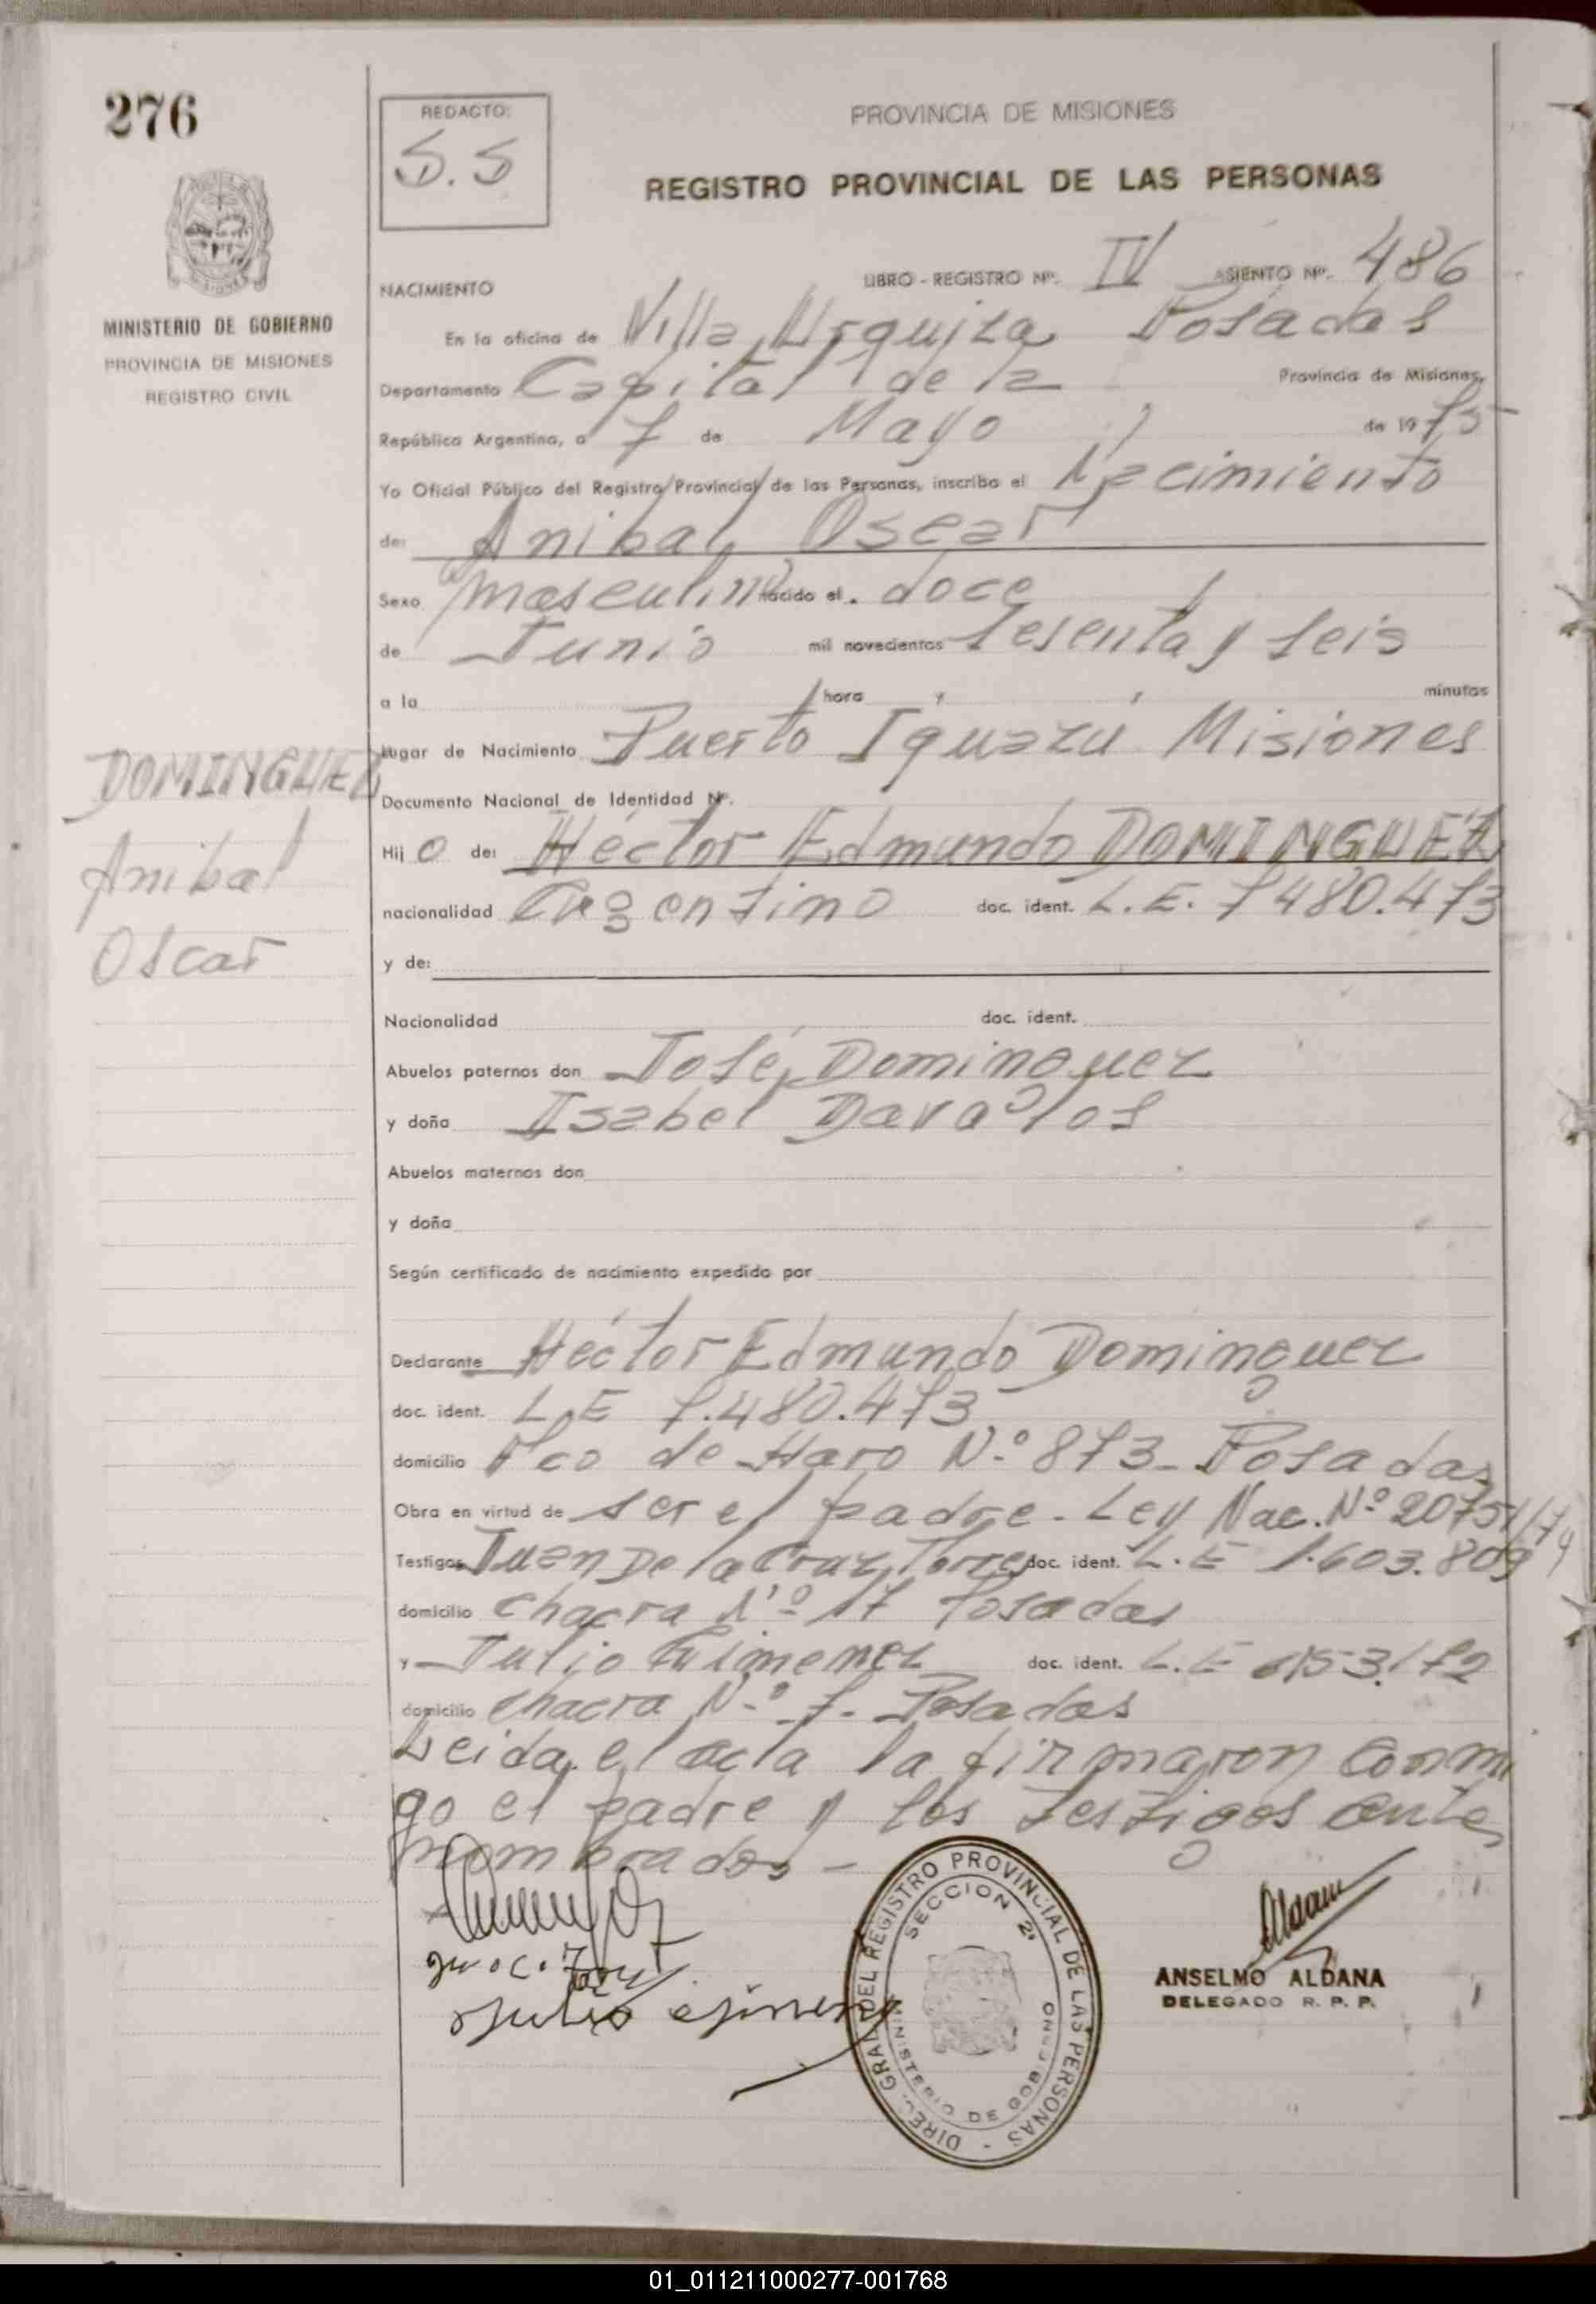 276
REDACTO:
S.S
MINISTERIO DE GOBIERNO
PROVINCIA DE MISIONES
REGISTRO CIVIL
PROVINCIA DE MISIONES
REGISTRO PROVINCIAL DE LAS PERSONAS
LIBRO - REGISTRO Nº. IV ASIENTO Nº. 486
NACIMIENTO
En la oficina de Villa Urquiza Posadas
Departamento Capital de la Provincia de Misiones,
República Argentina, a 7 de Mayo de 1975
Yo Oficial Público del Registro Provincial de las Personas, inscribo el Nacimiento
de: Anibal Oscar
Sexo masculino nacido el doce
de Junio mil novecientos sesenta y seis
a la hora y minutos
Lugar de Nacimiento Puerto Iguazú Misiones
DOMINGUEZ
Anibal
Oscar
Documento Nacional de Identidad Nº.
Hij o de: Héctor Edmundo DOMINGUEZ
nacionalidad Argentino doc. ident. L.E. 7480.473
y de:
Nacionalidad doc. ident.
Abuelos paternos don José Dominguez
y doña Isabel Davalos
Abuelos maternos don
y doña
Según certificado de nacimiento expedido por
Declarante Héctor Edmundo Dominguez
doc. ident. L.E 7.480.473
domicilio Fco de Haro N.º 873 - Posadas
Obra en virtud de ser el padre - Ley Nac. Nº 20751/74
Testigos Juan De la Cruz Torres doc. ident. L.E 1.603.809
domicilio Chacra Nº 17 Posadas
y Julio Gimenez doc. ident. L.E
domicilio Chacra N.º 7 - Posadas
Leida el acta la firmaron conmi
go el padre y los testigos ante
nombrados -
Julio Gimenez
DIREC. GRAL. DEL REGISTRO PROVINCIAL DE LAS PERSONAS -
SECCION 2ª
MINISTERIO DE GOBIERNO
Aldana
ANSELMO ALDANA
DELEGADO R. P. P.
01_011211000277-001768